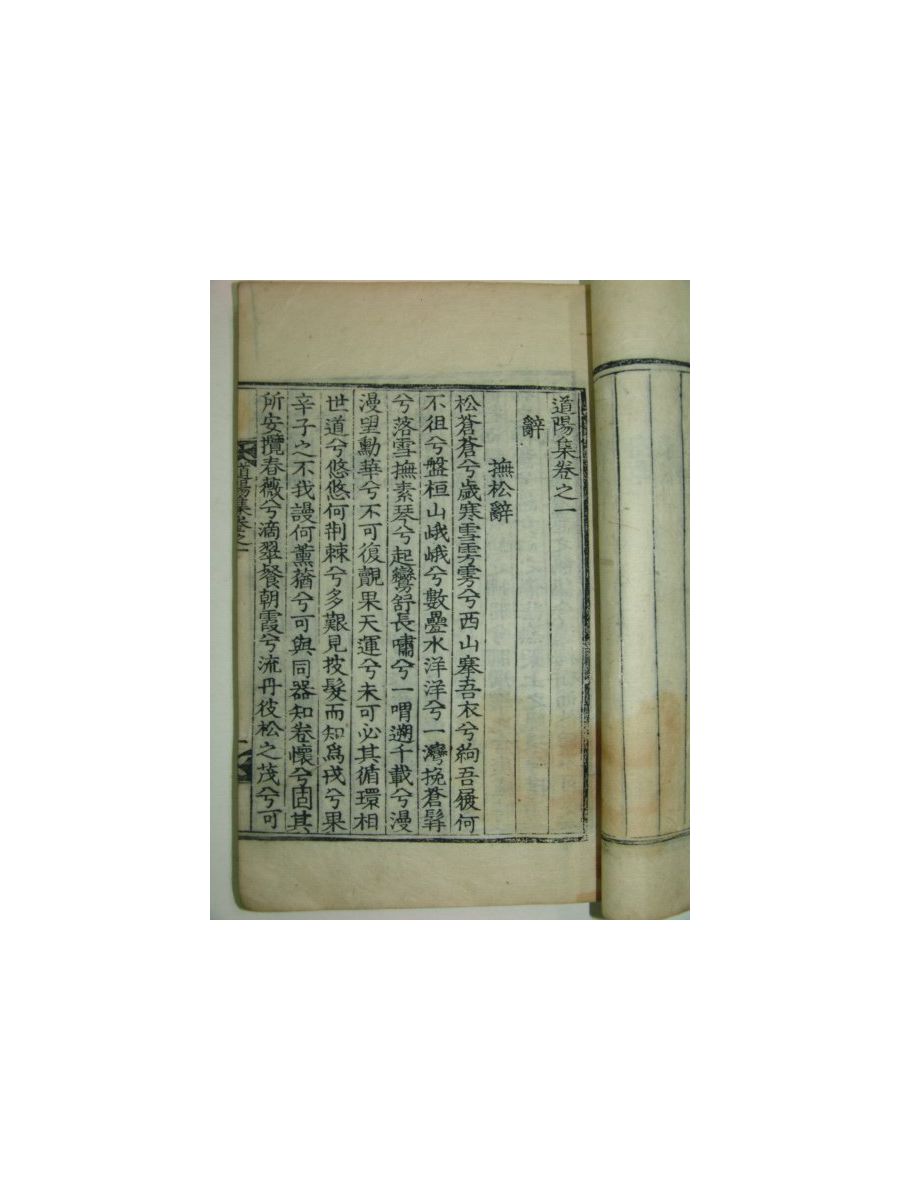 道陽集卷之一
辭
撫松辭
松蒼蒼兮歲寒雪雱雱兮西山褰吾衣兮絇吾屐何
不徂兮盤桓山峨峨兮數疊水洋洋兮一灣挽蒼髯
兮落雪撫素琴兮起鸞舒長嘯兮一喟遡千載兮漫
漫望勳華兮不可復覿果天運兮未可必其循環相
世道兮悠悠何荆棘兮多艱見披髮而知爲戎兮果
辛子之不我謾何薰蕕兮可與同器知卷懷兮固其
所安攬春薇兮滴翠餐朝霞兮流丹彼松之茂兮可
道陽集卷之一